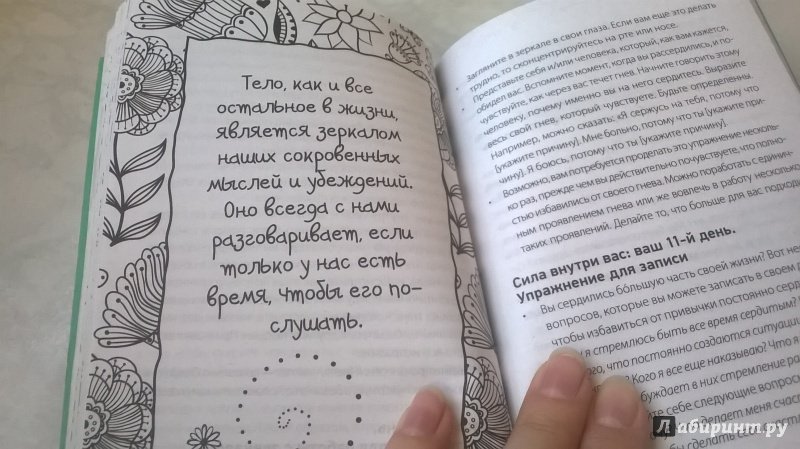 Тело, как и все
остальное в жизни,
является зеркалом
наших сокровенных
мыслей и убеждений.
Оно всегда с нами
разговаривает, если
только у нас есть
время, чтобы его по-
слушать.
Загляните в зеркале в свои глаза. Если вам еще это делать
трудно, то сконцентрируйтесь на рте или носе.
Представьте себя и/или человека, который, как вам кажется,
обидел вас. Вспомните момент, когда вы рассердились, и по-
чувствуйте, как через вас течет гнев. Начните говорить этому
человеку, почему именно вы на него сердитесь. Выразите
весь свой гнев, который чувствуете. Будьте определенны.
Например, можно сказать: «Я сержусь на тебя, потому что
[укажите причину]. Мне больно, потому что ты [укажите при-
чину]. Я боюсь, потому что ты [укажите причину].
• Возможно, вам потребуется проделать это упражнение несколь-
ко раз, прежде чем вы действительно почувствуете, что полно-
стью избавились от своего гнева. Можно поработать с единич-
ным проявлением гнева или же вовлечь в работу несколько
таких проявлений. Делайте то, что больше для вас подходи
Сила внутри вас: ваш 11-й день.
Упражнение для записи
• Вы сердились бо́льшую часть своей жизни? Вот не
вопросов, которые вы можете записать в своем
чтобы избавиться от привычки постоянно серд
я стремлюсь быть все время сердитым?
что постоянно создаются ситуаци
? Кого я все еще наказываю? Что я
буждает в них стремление ра
те себе следующие вопрос
делает меня счаст
бы сделать се
Лабиринт.ру